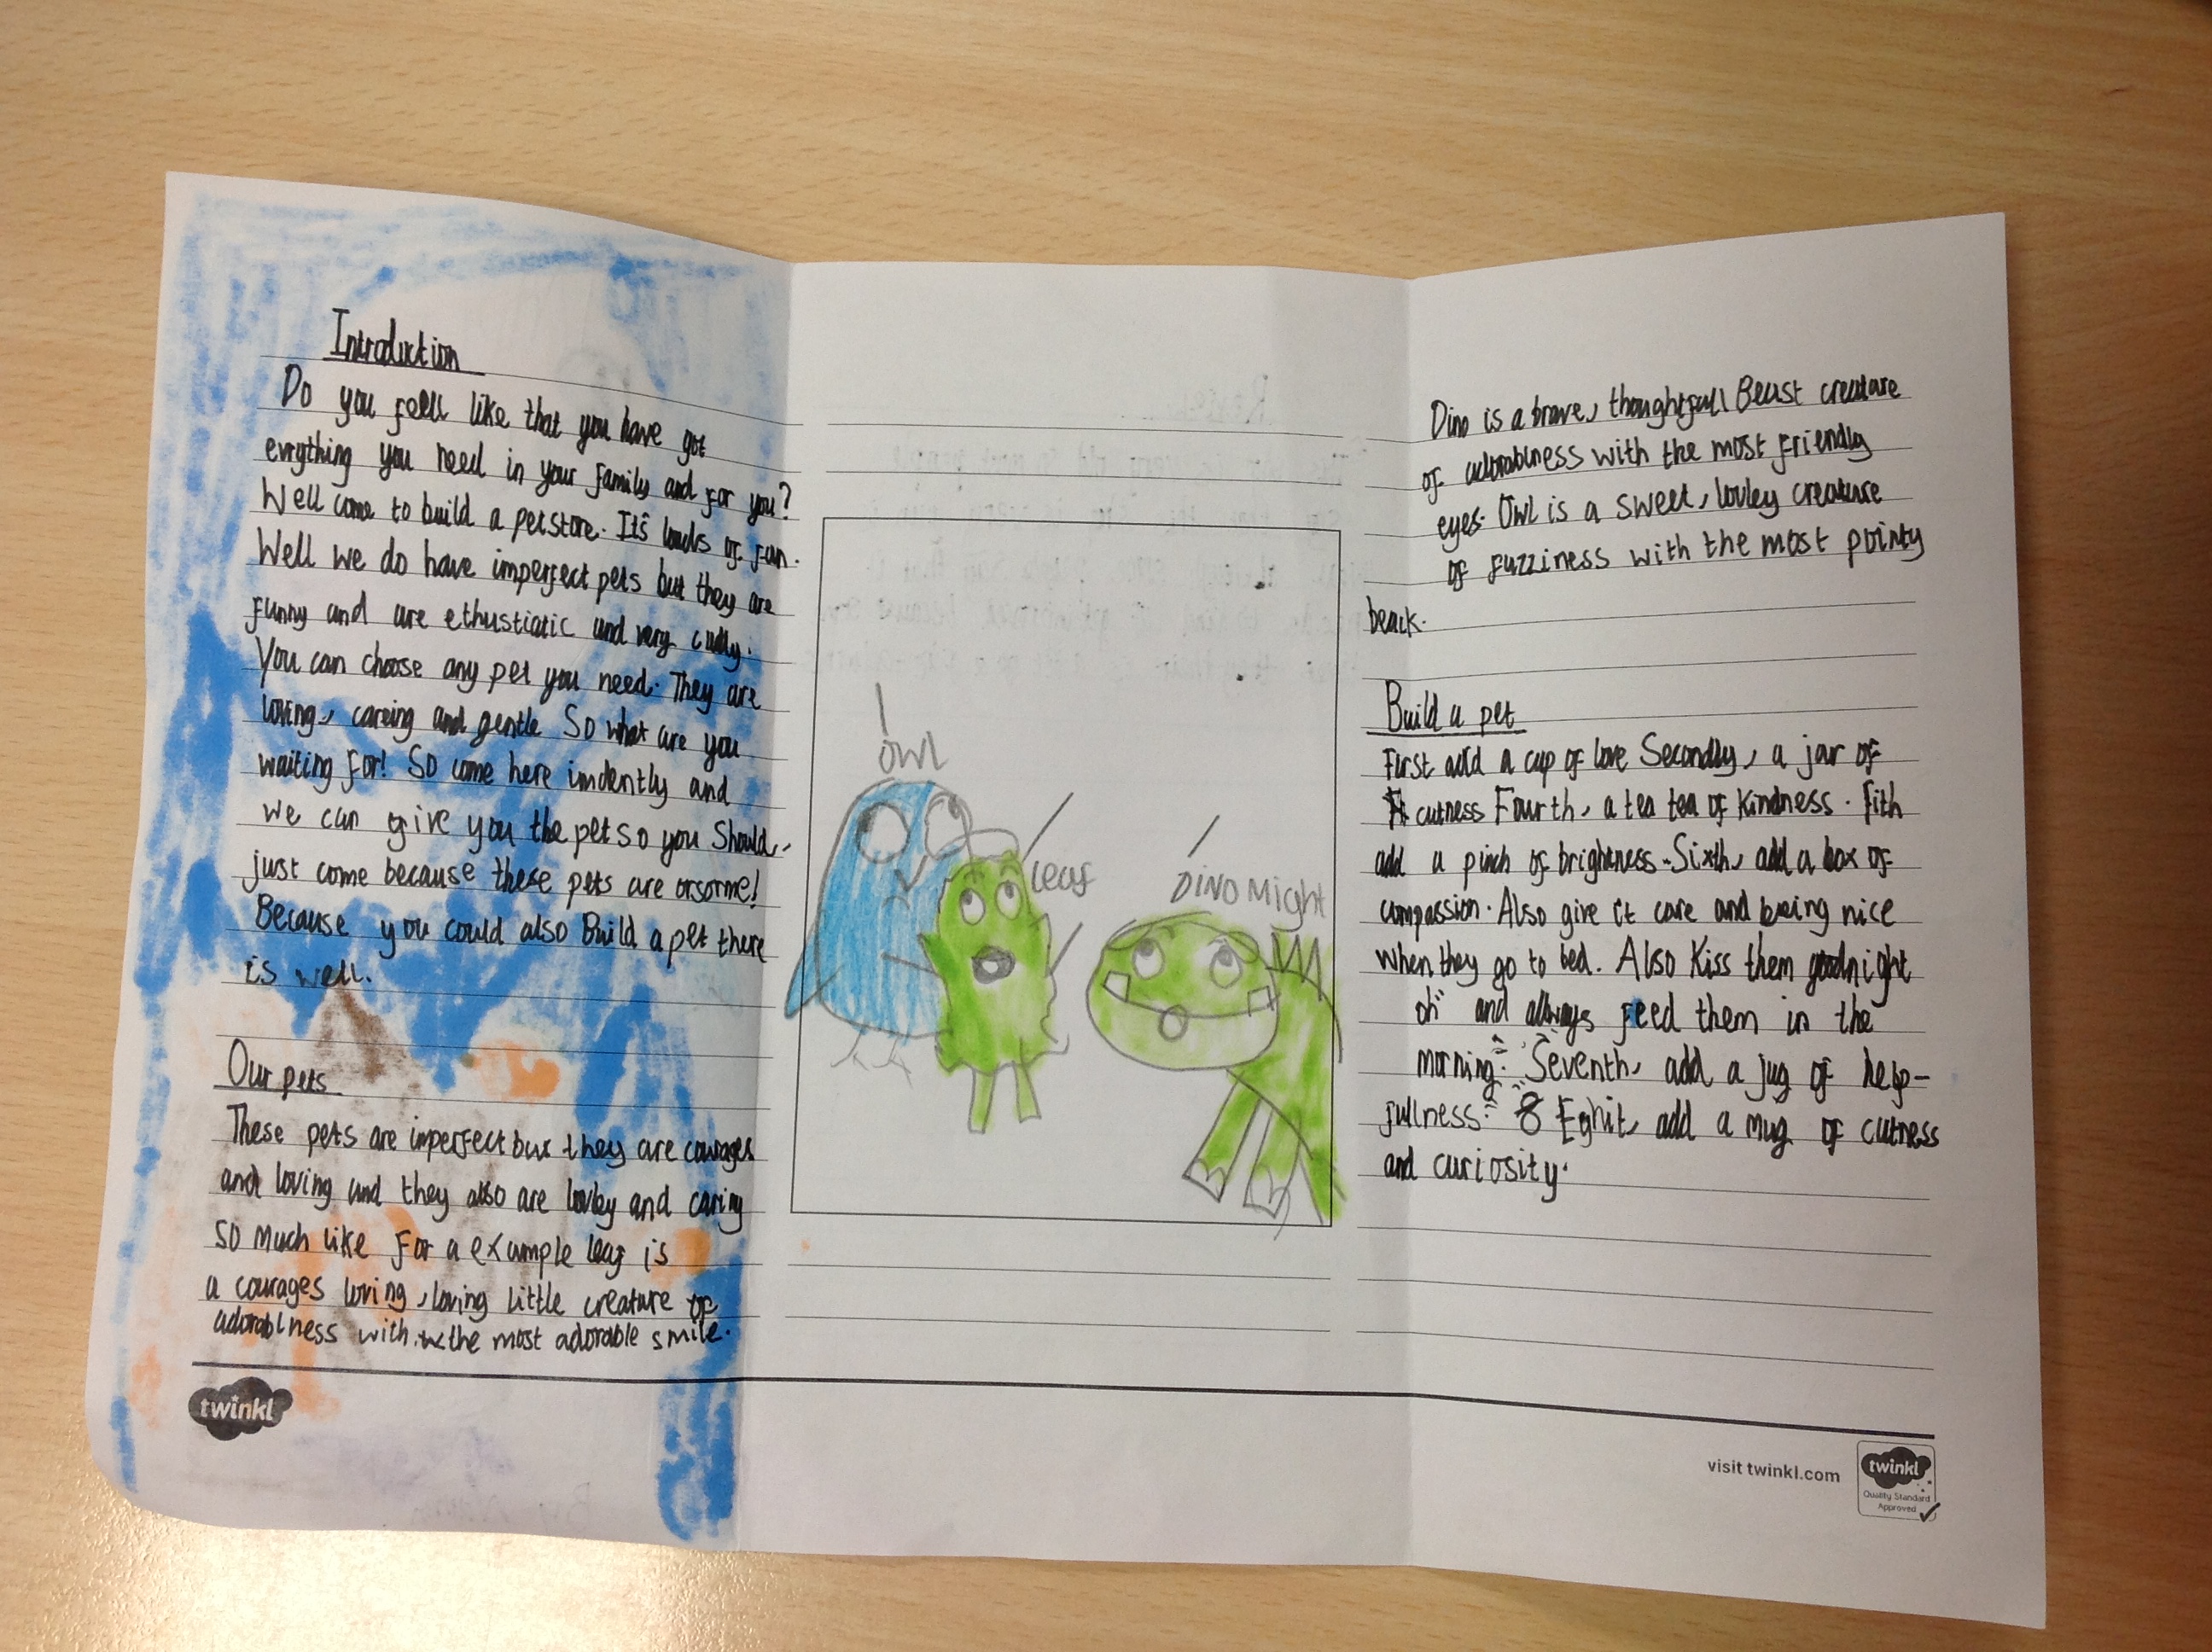 Introduction
Do you fell like that you have got
evrything you need in your family and for you?
Well come to build a petstore. It's loads of fun.
Well we do have imperfect pets but they are
funny and are ethustiatic and very cudly.
You can choose any pet you need. They are
loving, careing and gentle So what are you
waiting for! So come here imdently and
we can give you the pet so you should,
just come because these pets are orsorme!
Because you could also Build a pet there
is well.
Our pets
These pets are imperfect but they are courages
and loving and they also are lovley and caring
so much like for a example leaf is
a courages loving, loving little creature of
adorablness with the most adorable smile.
twinkl
owl
Leaf
DINO Might
Dino is a brave, thoughtfull Beast creature
of adorablness with the most friendly
eyes. Owl is a sweet, lovley creature
of fuzziness with the most pointy
beack.
Build a pet
First add a cup of love Secondly, a jar of
cutness Fourth, a tea tea of kindness. Fith
add a pinch of brightness. Sixth, add a box of
compassion. Also give it care and being nice
when they go to bed. Also Kiss them goodnight
oh" and always feed them in the
morning. Seventh, add a jug of help-
fullness. 8 Eghit, add a mug of cutness
and curiosity.
visit twinkl.com
twinkl
Quality Standard
Approved